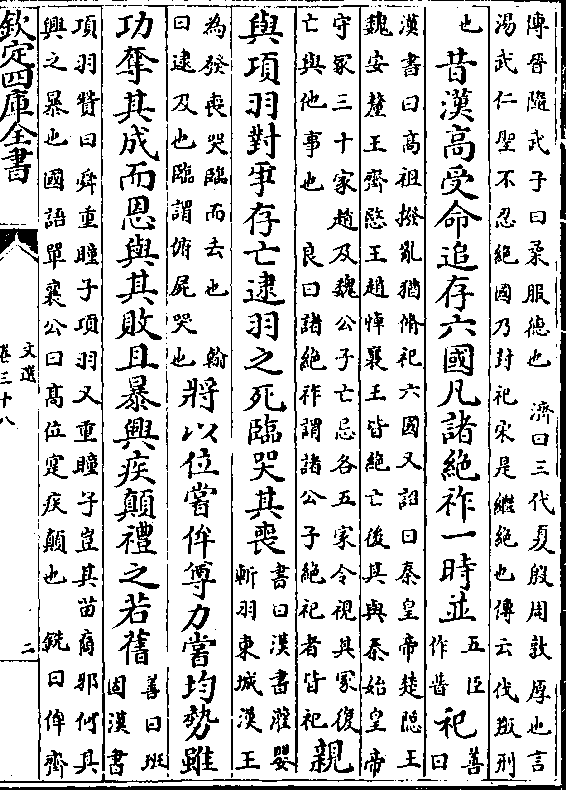 傳晉隨武子曰柔服德也　濟曰三代夏殷周敦厚也言
湯武仁聖不忍絶國乃封祀宋是繼絶也傳云伐叛刑
也
昔漢高受命追存六國凡諸絶祚一時並
五臣
作普
祀
善
曰
漢書曰高祖撥亂猶脩祀六國又詔曰秦皇帝楚隠王
魏安釐王齊愍王趙悼襄王皆絶亡後其與秦始皇帝
守冢三十家趙及魏公子亡忌各五家令視其冢復
亡與他事也　良曰諸絶祚謂諸公子絶祀者皆祀
親
與項羽對爭存亡逮羽之死臨哭其喪
書曰漢書灌嬰
斬羽東城漢王
為發喪哭臨而去也　翰
曰逮及也臨謂俯屍哭也
將以位嘗侔尊力嘗均勢雖
功奪其成而恩與其敗且暴興疾顛禮之若舊
善曰班
固漢書
項羽贊曰舜重瞳子項羽又重瞳子豈其苗裔邪何其
興之暴也國語單襄公曰髙位寔疾顛也　銑曰侔齊
欽定四庫全書
文選
卷三十八
二